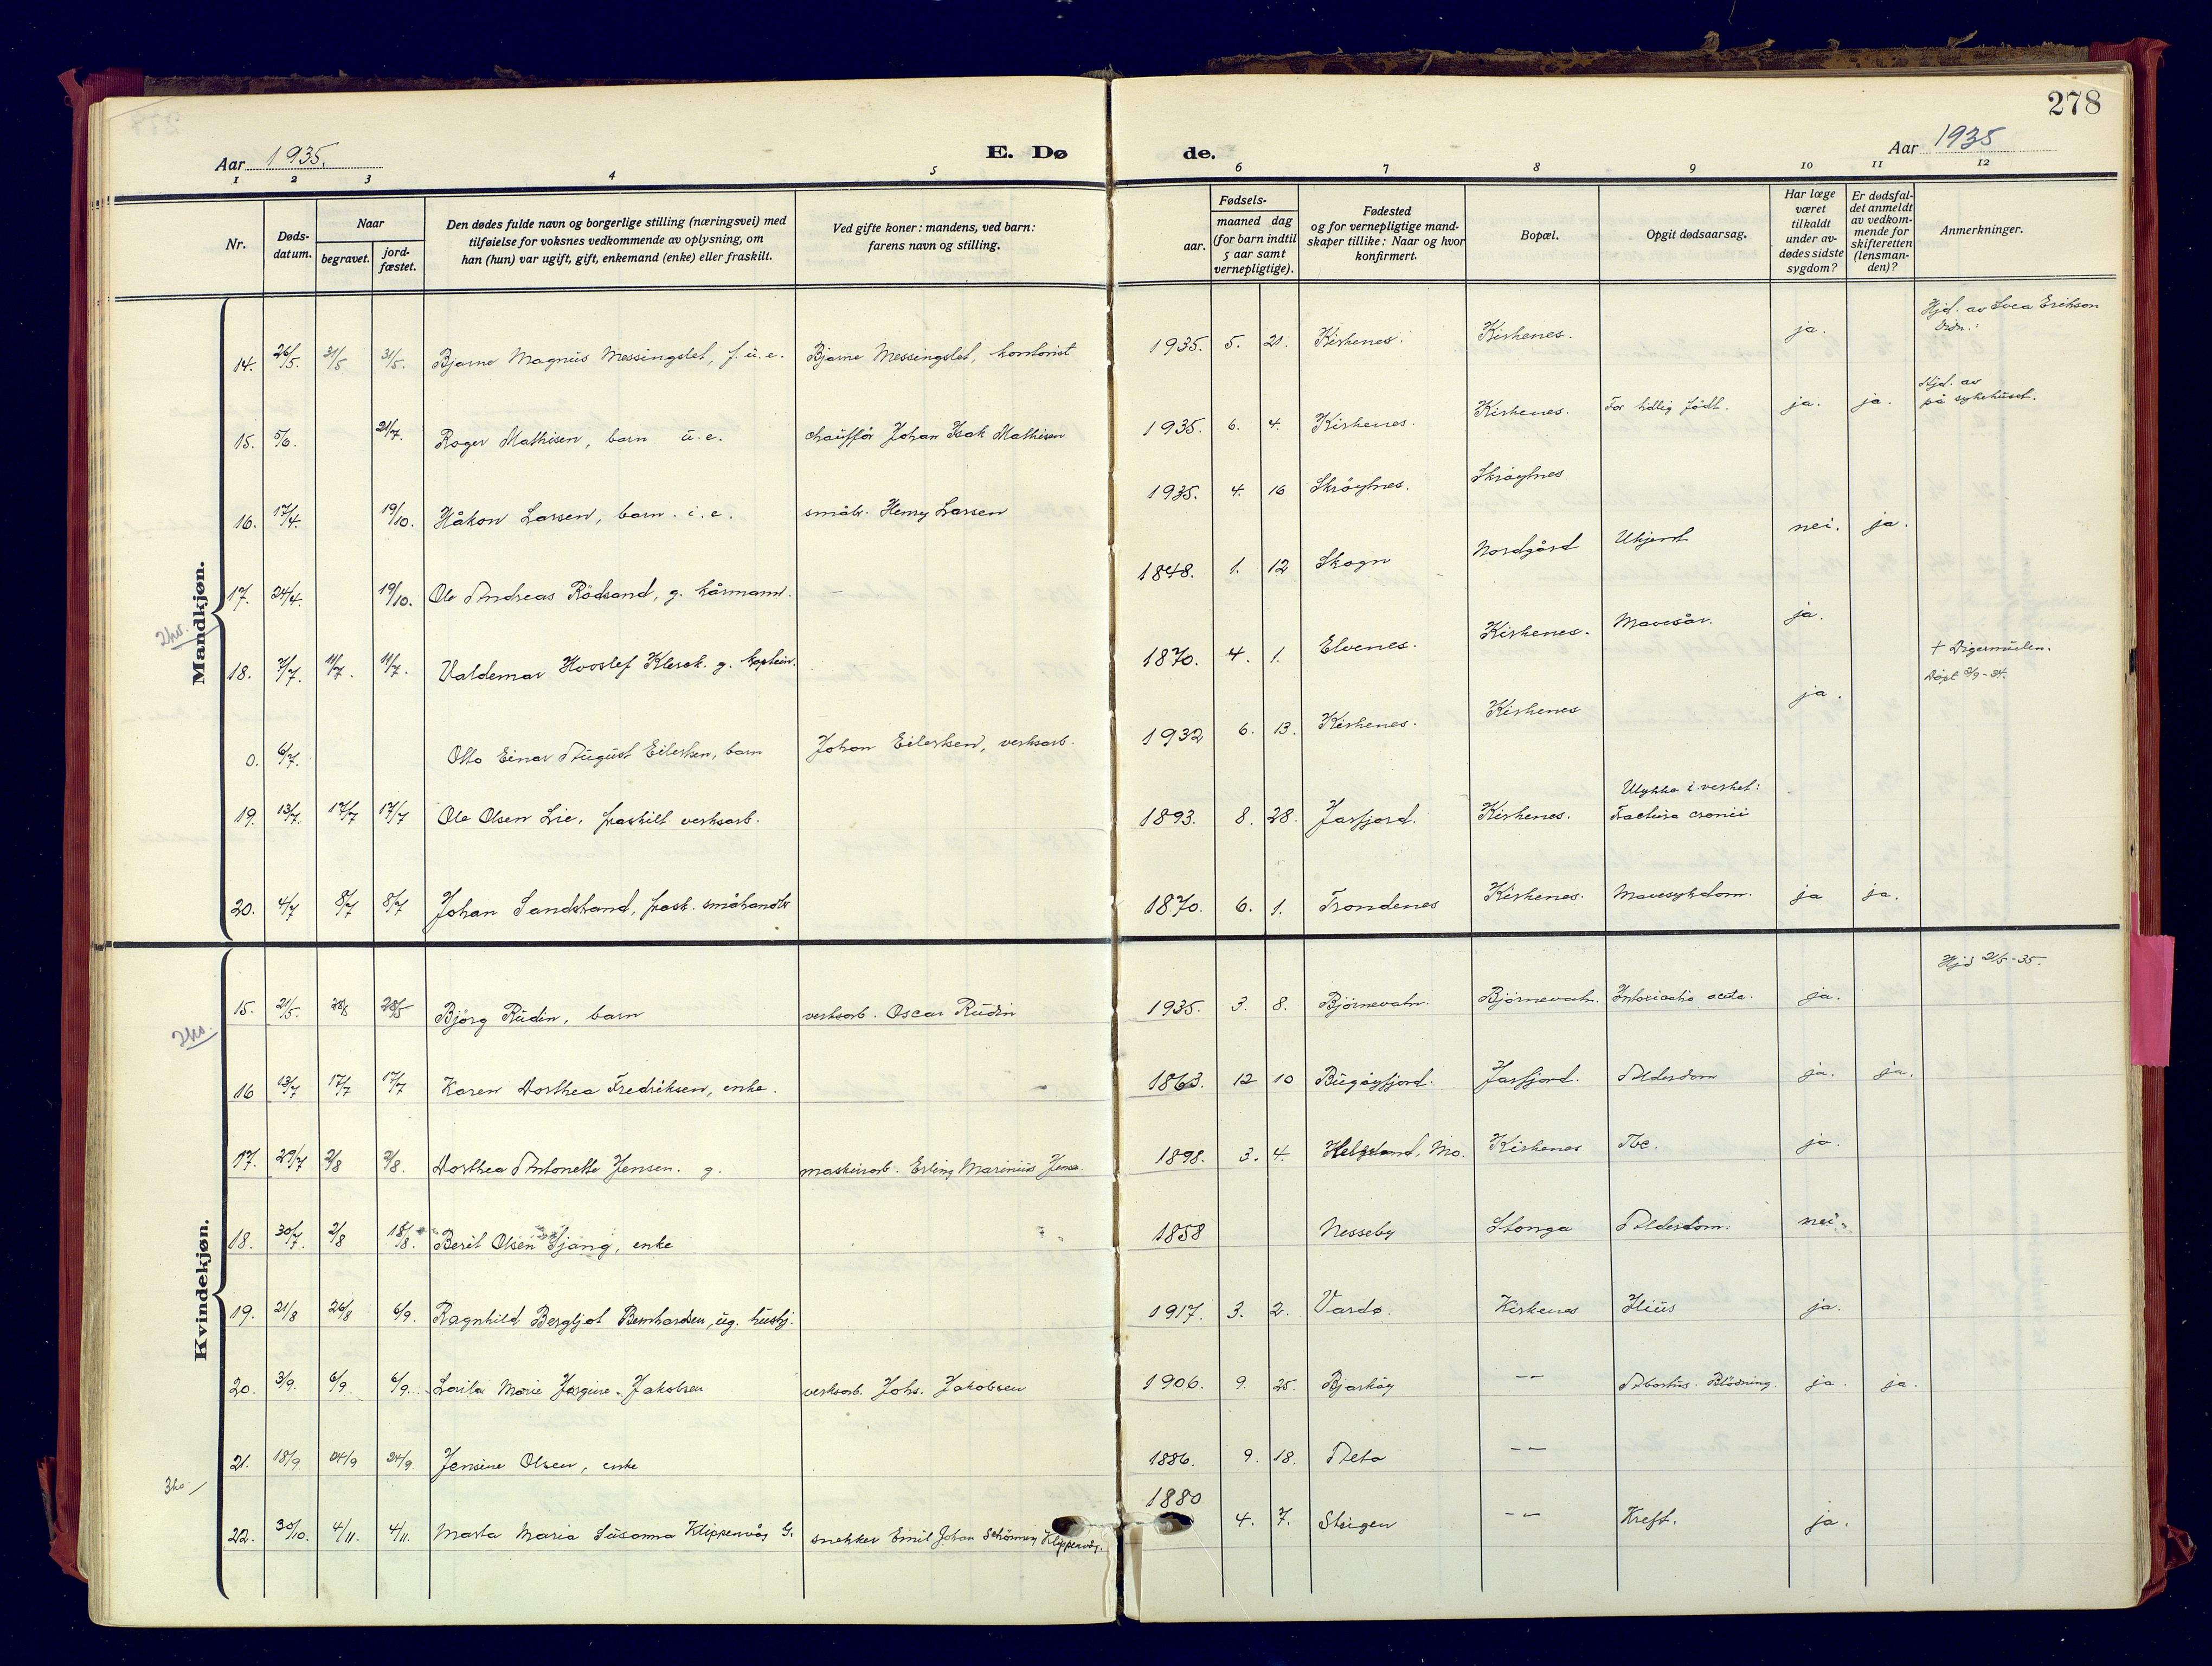 278
Aar 1935.
E. Dø
de.
Aar 1935
1 2 3 4 5 6 7 8 9 10 11 12
Nr.
Døds-
datum.
Naar
begravet.
jord-
fæstet.
Den dødes fulde navn og borgerlige stilling (næringsvei) med
tilføielse for voksnes vedkommende av oplysning, om
han (hun) var ugift, gift, enkemand (enke) eller fraskilt.
Ved gifte koner: mandens, ved barn:
farens navn og stilling.
Fødsels-
aar.
maaned dag
(for barn indtil
5 aar samt
vernepligtige).
Fødested
og for vernepligtige mand-
skaper tillike: Naar og hvor
konfirmert.
Bopæl.
Opgit dødsaarsag.
Har læge
været
tilkaldt
under av-
dødes sidste
sygdom?
Er dødsfal-
det anmeldt
av vedkom-
mende for
skifteretten
(lensman-
den)?
Anmerkninger.
Mandkjøn.
14. 26/5. 31/5 31/5. Bjarne Magnus Messingslet, f. u. e. Bjarne Messingslet, kontorist 1935. 5. 21. Kirkenes. Kirkenes. ja. Hjd. av Svea Erikson
15. 5/6. 21/7. Roger Mathisen, barn u. e. chauffør Johan Isak Mathisen 1935. 6. 4. Kirkenes. Kirkenes. For tidlig födt. ja. ja. Hjd. av
på sykehuset.
16. 17/4. 19/10. Håkon Larsen, barn. i. e. småbr. Henry Larsen 1935. 4. 16 Skröytnes. Skröytnes
17. 24/4. 19/10. Ole Andreas Rödsand, g. kårmann. — 1848. 1. 12 Skogn Nordgård Ukjent nei. ja.
18. 7/7. 11/7. 11/7. Valdemar Hvoslef Klerck. g. kaptein. 1870. 4. 1. Elvenes. Kirkenes. Mavesår. ja.
0. 6/7. Otto Einar August Eilertsen, barn Johan Eilertsen, verksarb. 1932 6. 13. Kirkenes. Kirkenes ja. + Digermulen.
Döpt 2/9-34.
19. 13/7. 17/7 17/7 Ole Olsen Lie, fraskilt verksarb. 1893. 8. 28. Jarfjord. Kirkenes. Ulykke i verket:
Fractura cranii
20. 4/7 8/7 8/7 Johan Sandstrand, frask. småhandlr 1870. 6. 1. Trondenes Kirkenes. Mavesykdom. ja ja.
Kvindekjøn.
15. 21/5. 28/5 28/5 Bjørg Rudin, barn verksarb. Oscar Rudin 1935. 3. 8. Björnevatn. Björnevatn. Intoxicatio acuta. ja. Hjd 21/5-35.
16 13/7 17/7 17/7 Karen Dorthea Fredriksen, enke. 1863. 12 10 Bugöyfjord. Jarfjord. Alderdom ja. ja.
17. 29/7 2/8 2/8. Dorthea Antonette Jensen. g. maskinarb. Erling Marinius Jensen 1898. 3. 4. Helgeland, Mo. Kirkenes Tbc. ja.
18. 30/7. 2/8 18/8. Berit Olsen Sjang, enke 1858 Nesseby Stonga Alderdom. nei.
19. 21/8 26/8 6/9. Ragnhild Bergljot Bernhardsen, ug. hushj. 1917. 3. 2. Vardø. Kirkenes Ilius ja.
20. 3/9. 6/9 6/9. Marie Jakobsen verksarb. Johs. Jakobsen 1906. 9. 25. Bjarköy — — Abortus. Blödning. ja. ja.
21. 18/9 24/9 24/9. Jensine Olsen, enke 1886. 9. 18. Alta — —
22. 30/10. 4/11. 4/11. Marta Maria Susanna Klippenvåg G. snekker Emil Johan Klippenvåg. 1880 4. 7. Steigen — — Kreft. ja.